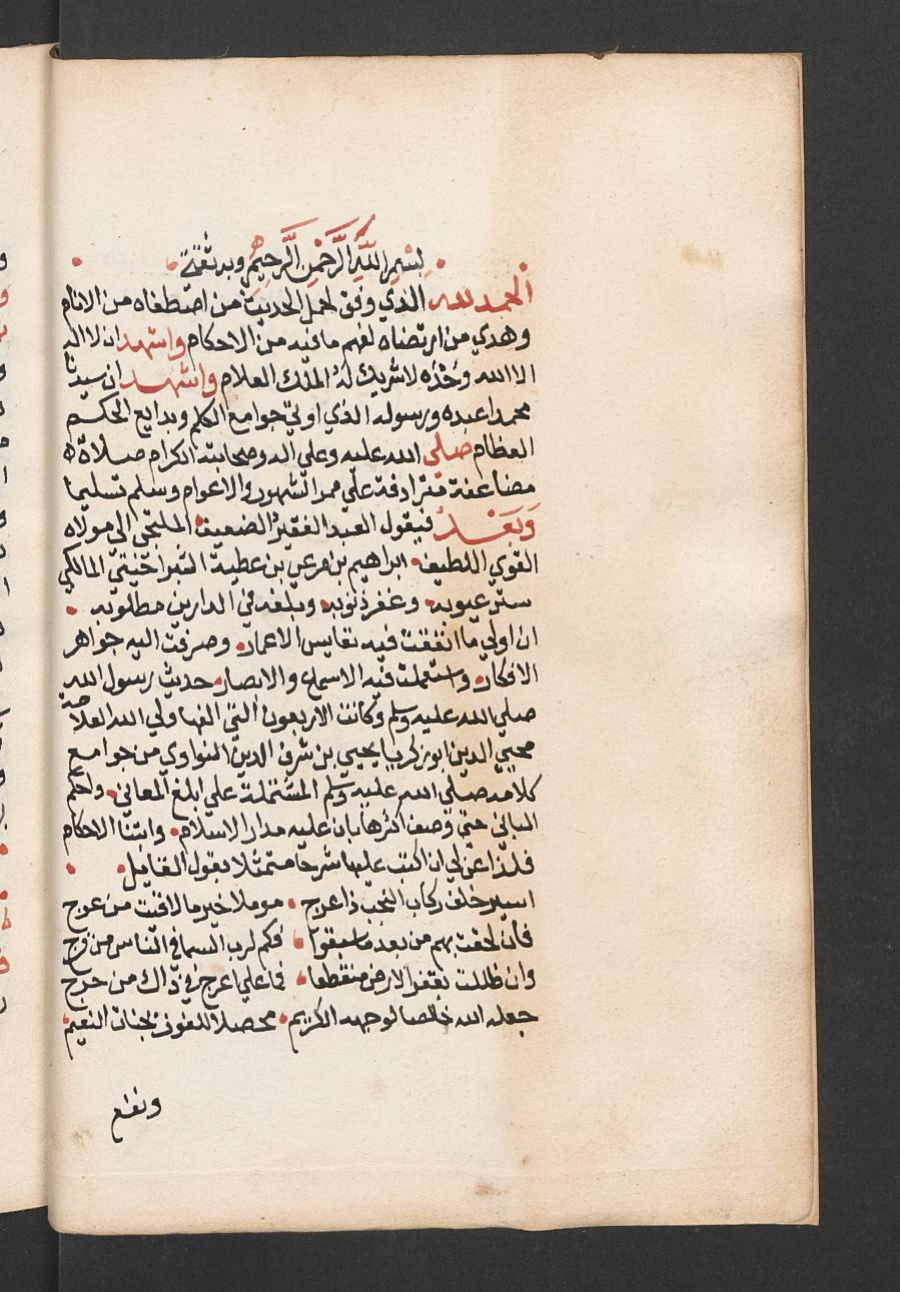 بسم الله الرحمن الرحيم وبه ثقتي
الحمد لله الذي وفق لحمل الحديث من اصطفاه من الانام
وهدي من ارتضاه لفهم ما فيه من الاحكام واشهد ان لا اله
الا الله وحده لا شريك له الملك العلام واشهد ان سيدنا
محمدا عبده ورسوله الذي اوتي جوامع الكلم وبدايع الحكم
العظام صلى الله عليه وعلي اله وصحابته الكرام صلاة
مضاعفة مترادفة علي ممر الشهور والاعوام وسلم تسليما
وبعد فيقول العبد الفقير الضعيف الملتجي الي مولاه
القوي اللطيف ابراهيم بن مرعي بن عطية الشبراخيتي المالكي
ستر عيوبه وغفر ذنوبه وبلغه في الدارين مطلوبه
ان اولي ما انفقت فيه نفايس الاعمار وصرفت اليه جواهر
الافكار واستعملت فيه الاسماع والابصار حديث رسول الله
صلي الله عليه وسلم وكانت الاربعون التي الفها ولي الله العلامة
محيي الدين ابو زكريا يحيي بن شرف الدين النواوي من جوامع
كلامه صلي الله عليه وسلم المشتملة علي ابلغ المعاني واحكم
المباني حتي وصف اكثرها بان عليه مدار الاسلام وابتنا الاحكام
فلذا عن لي ان اكتب عليها شرحا متمثلا بقول القايل
اسير خلف ركاب النجب ذا عرج موملا خير ما لاقيت من عوج
فان لحقت بهم من بعد ما سبقوا فكم لرب السما في الناس من فرج
وان ظللت بقفر الارض منقطعا فما علي اعرج في ذاك من حرج
جعله الله خالصا لوجهه الكريم محصلا للفوز بجنات النعيم
ونفع